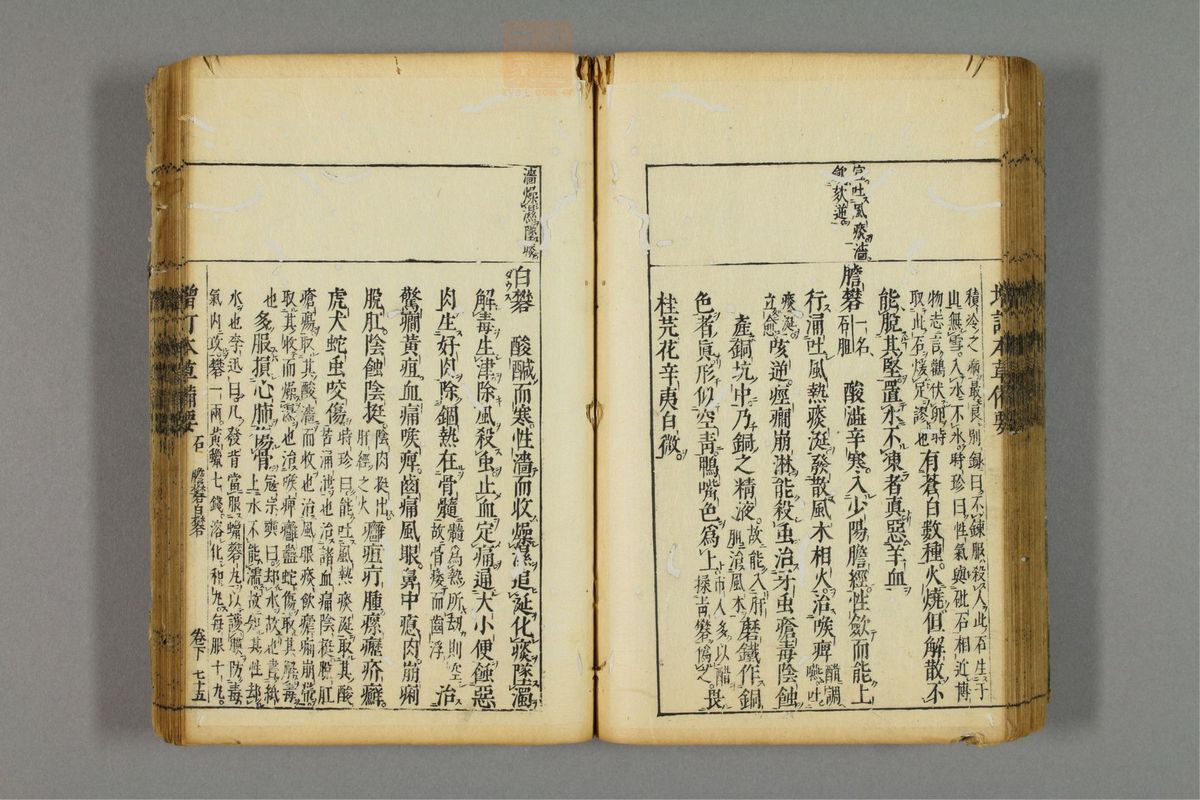 宣吐風痰濇
斂欬逆
積冷之病最良別錄曰不鍊服殺人此石生于
山無雪入水不氷時珍曰性氣與砒石相近博
物志言鸛伏卵時
取此石煖足證也有蒼白數種火燒但解散不
能脫其堅置水不凍者真惡羊血
膽礬一名石膽 酸澁辛寒入少陽膽經性斂而能上
行涌吐風熱痰涎發散風木相火治喉痺醋調嚥吐
痰涎立愈欬逆痙癇崩淋能殺虫治牙虫瘡毒陰蝕
產銅坑中乃銅之精液故能入肝膽治風木磨鐵作銅
色者真形似空青鴨嘴色爲上市人多以醋揉青礬偽之畏
桂芫花辛夷白薇
濇燥濕墜痰
白礬 酸鹹而寒性濇而收燥濕追涎化痰墜濁
解毒生津除風殺虫止血定痛通大小便蝕惡
肉生好肉除錮熱在骨髓髓爲熱所刼則空故骨痿而齒浮治
驚癇黃疸血痛喉痺齒痛風眼鼻中瘜肉崩痢
脫肛陰蝕陰挺陰肉挺出肝經之火癰疽疔腫瘰癧疥癬
虎犬蛇虫咬傷時珍曰能吐風熱痰涎取其酸
苦涌泄也治諸血痛陰挺脫肛
瘡瘍取其酸濇而收也治風眼痰飲瘡痢崩帶
取其收而燥濕也治喉痺癰蠱蛇傷取其解毒
也多服損心肺傷骨寇宗奭曰却水故也書紙上水不能濡故知其性却
水也李迅曰凡發背當服蠟礬丸以護膜防毒
氣內攻礬一兩黃蠟七錢溶化和丸每服十丸
增訂本草備要 石 膽礬白礬 卷下 七十五